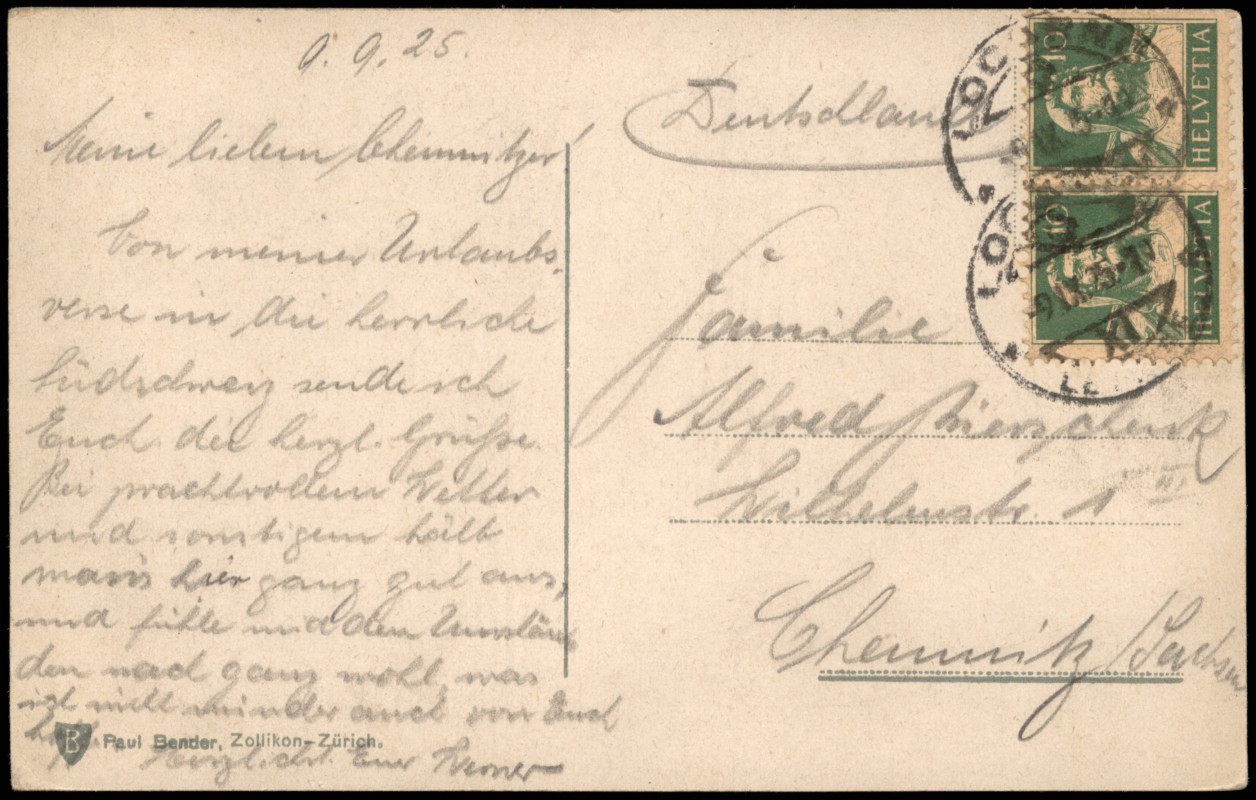 9. 9. 25.
Meine lieben Chemnitzer!
Von meiner Urlaubs-
reise in die herrliche
Südschweiz sende ich
Euch die herzl. Grüße.
Bei prachtvollem Wetter
und sonstigem hält
man's hier ganz gut aus,
und fühle mich den Umstän
den nach ganz wohl, was
ist nicht minder auch von Euch
Herzlichst Euer Werner
B Paul Bender, Zollikon-Zürich.
Deutschland
Familie
Alfred Bierschenk
III
Wilhelmstr. 1
Chemnitz/Sachsen
10 HELVETIA
10 HELVETIA
LOCARNO
-9.IX.25.-